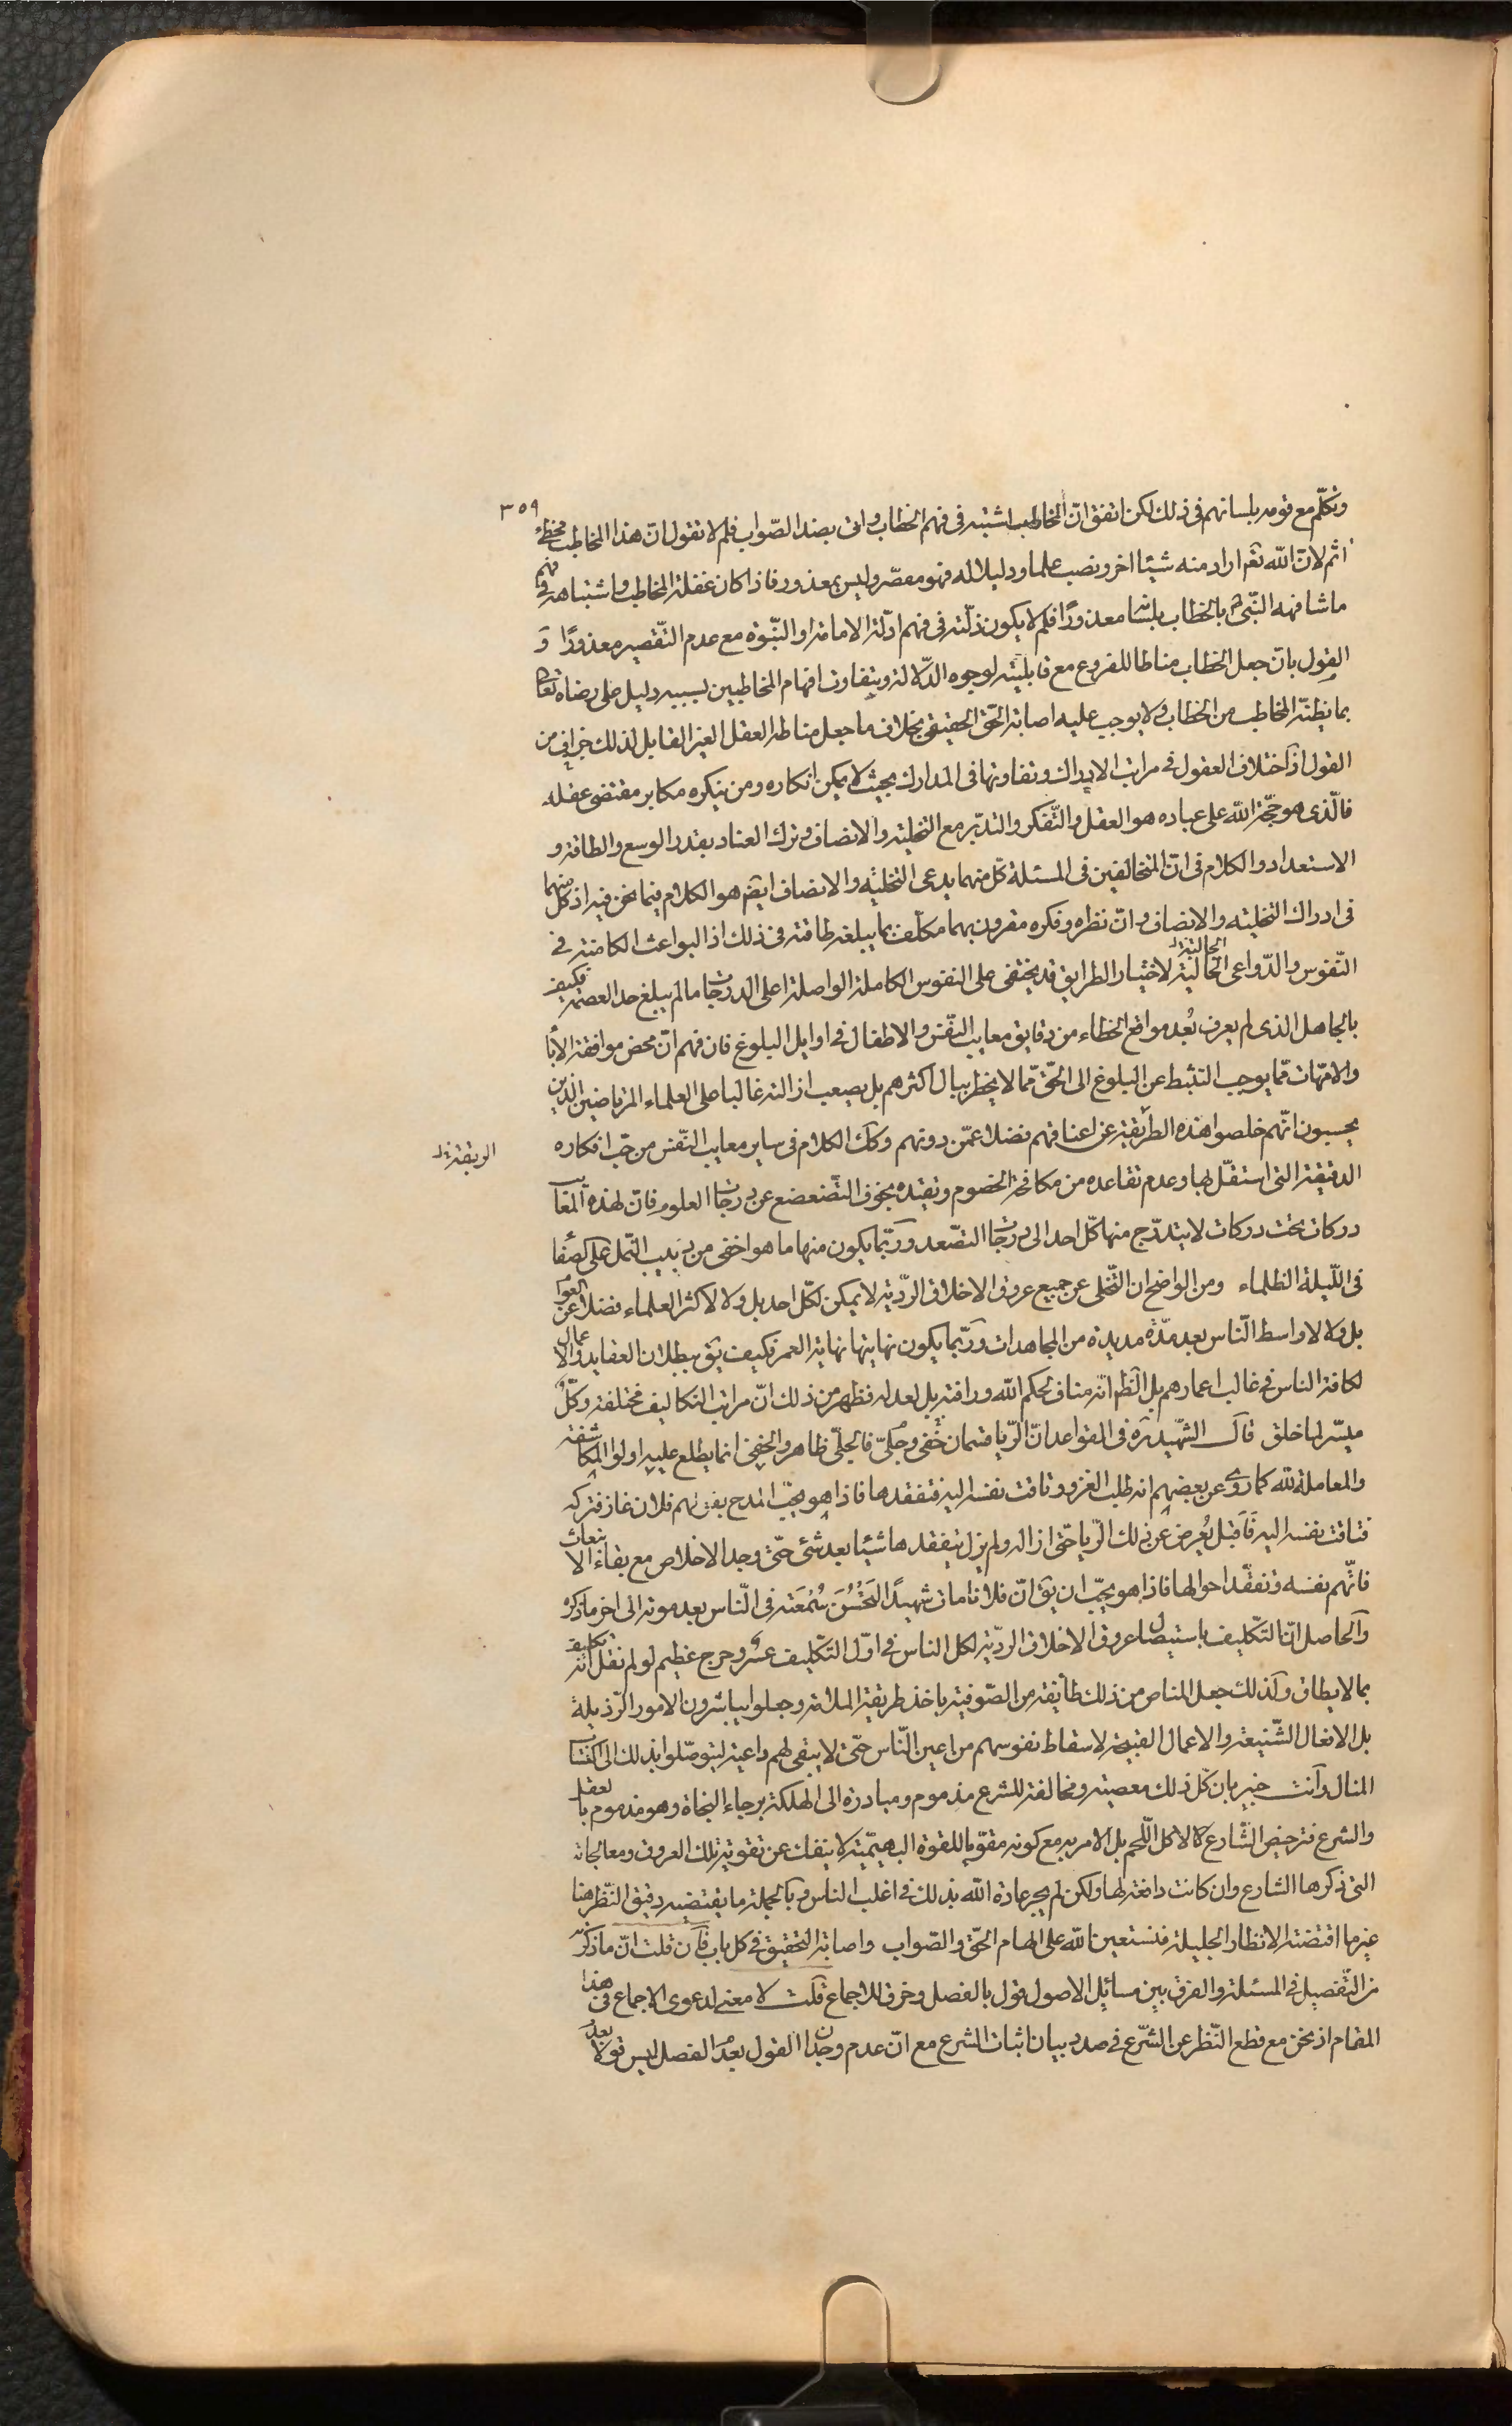 ٣٥٩
وتكلّم مع قومه بلسانهم فى ذلك لكن اتفق انّ المخاطب اشتبه فى فهم الخطاب واتى بضد الصّواب فلم لا تقول انّ هذا المخاطب مخطئ
اثم لانّ الله تعٓ اراد منه شيئا اخر ونصب علما ودليلا له فهو مقصّر وليس بمعذور فاذا كان غفلة المخاطب واشتباهه فى فهم
ما شافهه النّبى ص بالخطاب بلسٰانه معذورًا فلم لا يكون زلّته فى فهم ادلّة الامامة او النّبوة مع عدم التّقصير معذورًا وَ
القول بانّ جعل الخطاب مناطا للفروع مع قابليّته لوجوه الدّلالة ويتفاوت افهام المخاطبين بسببه دليل على رضاه تعالى
بما يظنّه المخاطب من الخطاب ولا يوجب عليه اصابة الحّق الحقيقى بخلاف ما جعل مناطه العقل الغير القابل لذلك جزاف من
القول اذ اختلاف العقول فى مراتب الادراك وتفاوتها فى المدارك بحيث لا يمكن انكاره ومن ينكره مكابر مقتضى عقله
فالّذى هو حجّة الله على عباده هو العقل والتّفكر والتدبّر مع التخلية والانصاف وترك العناد بقدر الوسع والطاقة و
الاستعداد والكلام فى انّ المتخالفين فى المسئلة كلّ منهما يدعى التخلية والانصاف ايضٓ هو الكلام فيما نحن فيه اذ كل منهما
فى ادراك التخلية والانصاف وانّ نظره وفكره مقرون بهما مكلّف بما يبلغه طاقته فى ذلك اذ البواعث الكامنة فى
النّفوس والدّواعى الحالية لاختيار الطرايق قد يختفى على النفوس الكاملة الواصلة اعلى الدرجات ما لم يبلغ حد العصمة فكيف
الجالبة
بالجاهل الذى لم يعرف بُعد مواقع الخطاء من دقايق معايب النّفس والاطفال فى اوايل البلوغ فان فهم انّ محض موافقة الأبا
والامّهات ممّا يوجب التثبط عن البلوغ الى الحّق ممّا لا يخطر ببال اكثرهم بل يصعب ازالته غالبا على العلماء المرتاضين الذين
يحسبون انّهم خلصوا هذه الطريقة عن اعناقهم فضلا عمّن دونهم وكك الكلام فى ساير معايب النّفس من حبّ افكاره
الربقة
الدقيقة التى استقلّ بها وعدم تقاعده من مكافحة الخصوم وتقيّده بخوف التّضعضع عن درجات العلوم فانّ لهذه المعايب
دركات تحت دركات لا يتدرّج منها كلّ احد الى درجات التصّعد وربّما يكون منها ما هو اخفى من دبيب النّمل على الصّفا
فى اللّيلة الظلماء ومن الواضح ان التّخلى عن جميع عروق الاخلاق الردّية لا يمكن لكلّ احد بل ولا لاكثر العلماء فضلا عن العوام
بل ولا لاواسط النّاس بعد مدّة مديدة من المجاهدات وربّما يكون نهايتها نهاية العمر فكيف يقٓ ببطلان العقايد والاعمال
لكافة الناس فى غالب اعمارهم بل الظٓ انّه مناف لحكم الله ورافته بل لعدله فظهر من ذلك انّ مراتب التكاليف مختلفة وكلٌّ
ميسّر لما خلق قال الشّهيد ره فى القواعد انّ الرّيا قسمان خفّى وجلّى فالجلّى ظاهر والخفى انما يطلع عليه اولوا المكاشفة
والمعاملة لله كما روى عن بعضهم انه طلب الغزو وتاقت نفسه اليه فتفقدها فاذا هو يحبّ المدح بقولهم فلان غاز فتركه
فتاقت نفسه اليه فاقبل يُعرض عن ذلك الرّيا حتّى ازاله ولم يزل يتفقدها شيئا بعد شئى حتّى وجد الاخلاص مع بقاء الانبعاث
فاتّهم نفسه وتفقّد احوالها فاذا هو يحبّ ان يقٓ انّ فلانا مات شهيدًا لتَحْسُنَ سُمْعَته فى النّاس بعد موته الى اخر ما ذكره
والحاصل انّ التّكليف باستيصال عروق الاخلاق الردّية لكل الناس فى اوّل التّكليف عسْر وحرج عظيم لو لم نقل انّه تكليف
بما لا يطاق ولذلك جعل المناص من ذلك طايفة من الصّوفية باخذ طريقة الملامة وجعلوا يباشرون الامور الرّذيلة
بل الافعال الشّنيعة والاعمال القبيحة لاسقاط نفوسهم من اعين النّاس حتّى لا يبقى لهم داعية ليتوصّلوا بذلك الى اكتساب
المنال وانت خبير بان كلّ ذلك معصية ومخالفة للشرع مذموم ومبادرة الى الهلكة برجاء النجاة وهو مذموم بالعقل
والشرع فترخيص الشّارع كالاكل اللّحم بل الامر به مع كونه مقوّيا للقوة البهيميّة لا ينفك عن تقوية تلك العروق ومعالجاته
التى ذكرها الشارع وان كانت دافعة لها ولكن لم يجر عادة الله بذلك فى اغلب الناس وبالجملة ما يقتضيه دقيق النّظر هنا
غير ما اقتضته الانظار الجليلة فنستعين بالله على الهام الحّق والصّواب واصابة التحقيق فى كل باب فان قلت انّ ما ذكرته
من التّفصيل فى المسئلة والفرق بين مسائل الاصول قول بالفصل وخرق للاجماع قلت لا معنى لدعوى الاجماع فى هذا
المقام اذ نحن مع قطع النّظر عن الشّرع فى صدد بيان اثبات الشرع مع انّ عدم وجدان القول بعدم الفصل ليس قولا بعدم